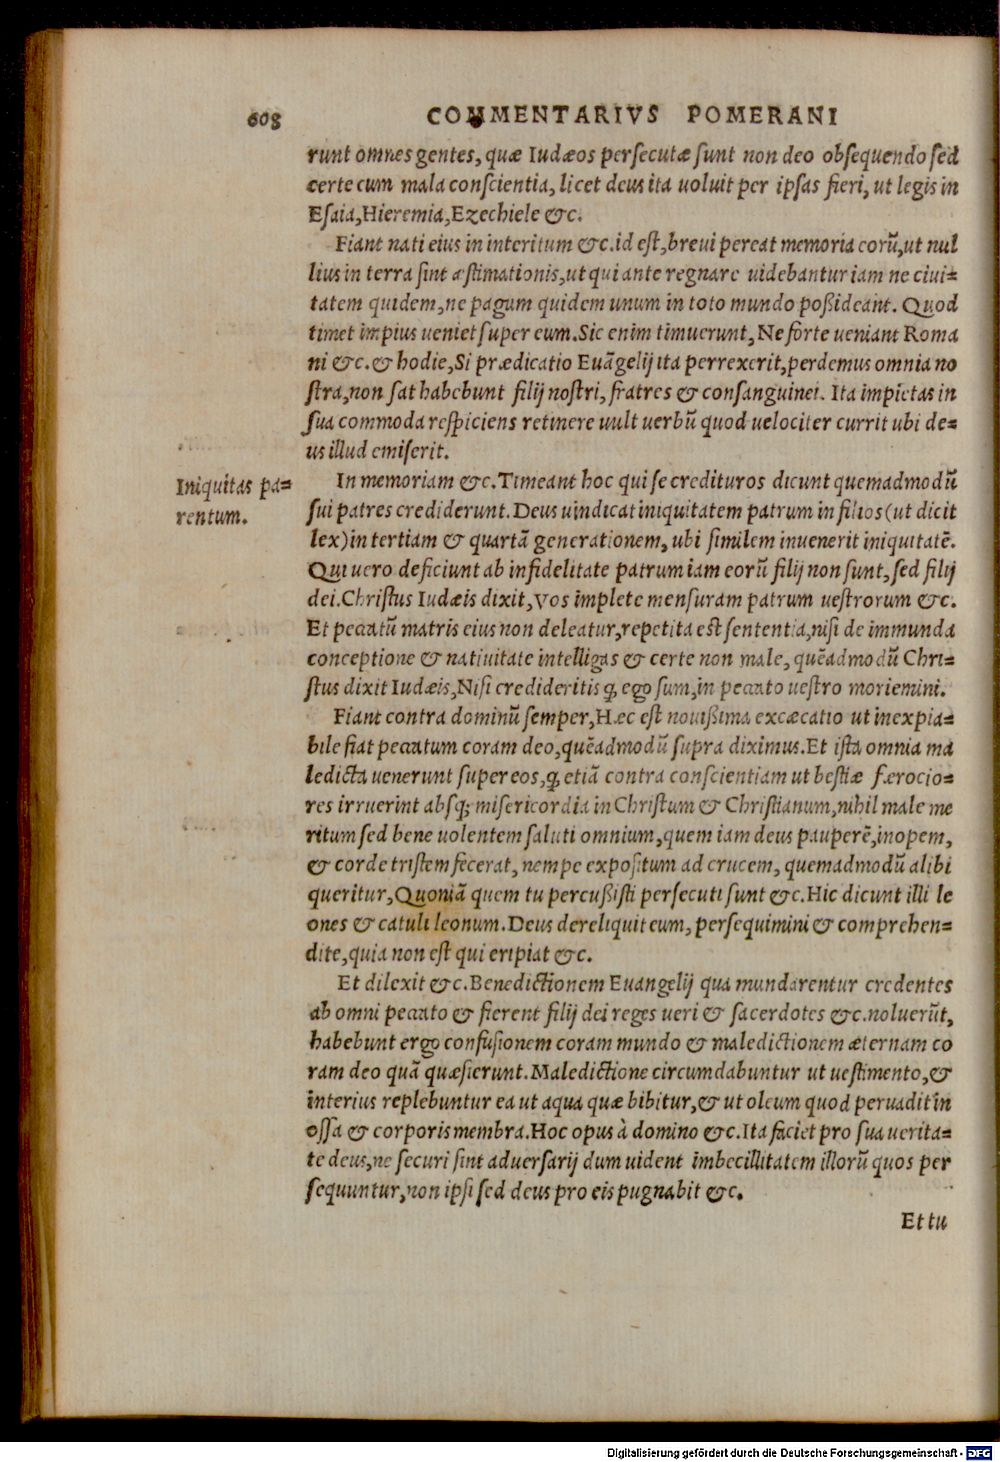 608 COMMENTARIVS POMERANI
runt omnes gentes, quæ Iudæos persecutæ sunt non deo obsequendo sed
certe cum mala conscientia, licet deus ita uoluit per ipsas fieri, ut legis in
Esaia, Hieremia, Ezechiele &c.
Fiant nati eius in interitum &c. id est, breui pereat memoria eorũ, ut nul
lius in terra sint æstimationis, ut qui ante regnare uidebantur iam ne ciui=
tatem quidem, ne pagum quidem unum in toto mundo poßideant. Quod
timet impius ueniet super eum. Sic enim timuerunt, Ne forte ueniant Roma
ni &c. & hodie, Si prædicatio Euãgelij ita perrexerit, perdemus omnia no
stra, non sat habebunt filij nostri, fratres & consanguinei. Ita impietas in
sua commoda respiciens retinere uult uerbũ quod uelociter currit ubi de=
us illud emiserit.
Iniquitas pa=
rentum.
In memoriam &c. Timeant hoc qui se credituros dicunt quemadmodũ
sui patres crediderunt. Deus uindicat iniquitatem patrum in filios (ut dicit
lex) in tertiam & quartã generationem, ubi similem inuenerit iniquitatẽ.
Qui uero deficiunt ab infidelitate patrum iam eorũ filij non sunt, sed filij
dei. Christus Iudæis dixit, Vos implete mensuram patrum uestrorum &c.
Et peccatũ matris eius non deleatur, repetita est sententia, nisi de immunda
conceptione & natiuitate intelligas & certe non male, quẽadmodũ Chri=
stus dixit Iudæis, Nisi credideritis ꝗ ego sum, in peccato uestro moriemini.
Fiant contra dominũ semper, Hæc est nouißima excæcatio ut inexpia=
bile fiat peccatum coram deo, quẽadmodũ supra diximus. Et ista omnia ma
ledicta uenerunt super eos, ꝗ etiã contra conscientiam ut bestiæ færocio=
res irruerint absq; misericordia in Christum & Christianum, nihil male me
ritum sed bene uolentem saluti omnium, quem iam deus pauperẽ, inopem,
& corde tristem fecerat, nempe expositum ad crucem, quemadmodũ alibi
queritur, Quoniã quem tu percußisti persecuti sunt &c. Hic dicunt illi le
ones & catuli leonum. Deus dereliquit eum, persequimini & comprehen=
dite, quia non est qui eripiat &c.
Et dilexit &c. Benedictionem Euangelij qua mundarentur credentes
ab omni peccato & fierent filij dei reges ueri & sacerdotes &c. noluerũt,
habebunt ergo confusionem coram mundo & maledictionem æternam co
ram deo quã quæsierunt. Maledictione circumdabuntur ut uestimento, &
interius replebuntur ea ut aqua quæ bibitur, & ut oleum quod peruadit in
ossa & corporis membra. Hoc opus à domino &c. Ita faciet pro sua uerita=
te deus, ne securi sint aduersarij dum uident imbecillitatem illorũ quos per
sequuntur, non ipsi sed deus pro eis pugnabit &c.
Et tu
Digitalisierung gefördert durch die Deutsche Forschungsgemeinschaft - DFG